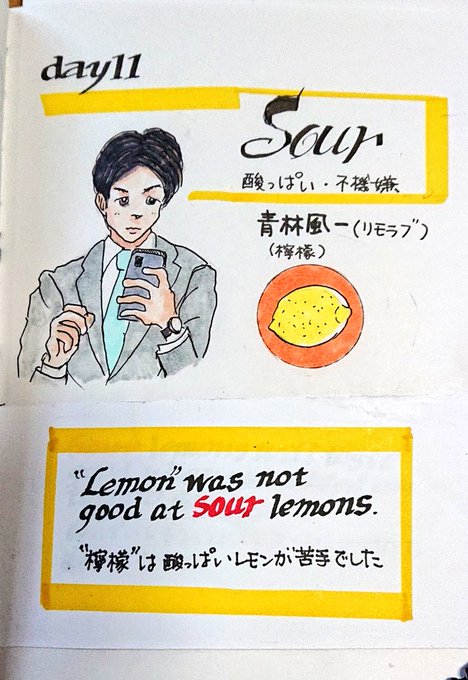 day11
Sour
酸っぱい・不機嫌
青林風一(リモラブ)
(檸檬)
"Lemon" was not
good at sour lemons.
"檸檬"は酸っぱいレモンが苦手でした